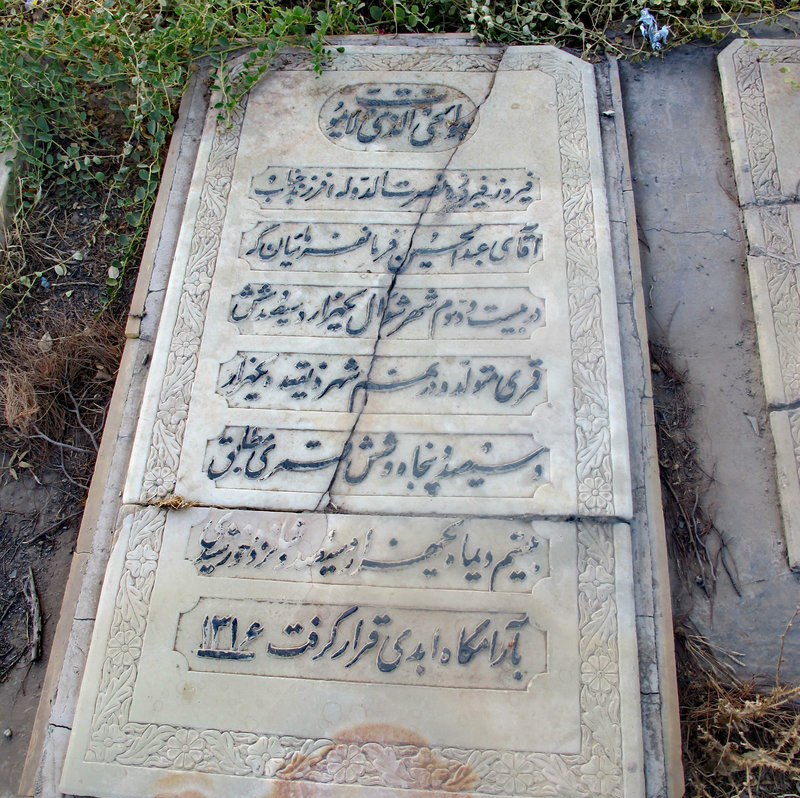 هوالحی الذی لایموت
فیروز فیروز نصرت الدوله فرزند جناب
آقای عبدالحسین فرمانفرمائیان که
در بیست و دوم شهر شوال یکهزار و سیصد و شش
قمری متولد و در هفتم شهر ذیقعده یکهزار
و سیصد و پنجاه و شش قمری مطابق
بیستم دیماه یکهزار و سیصد و شانزده خورشیدی
بآرامگاه ابدی قرار گرفت ۱۳۱۶